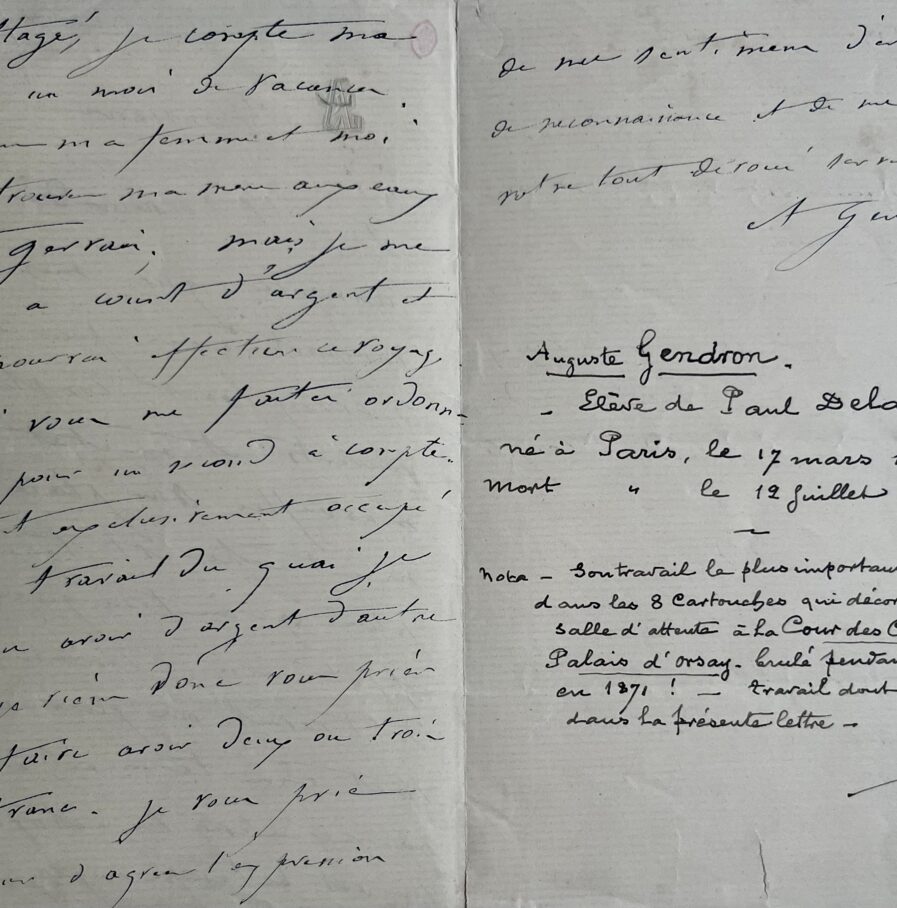 je compte ma
un mois de vacances
ma femme et moi
trouver ma mère aux eaux
Gervais. mais je me
a court d'argent et
effectuer ce voyage
vous me faites ordonn-
pour un second à compte.
exclusivement occupé
travail du quai je
avoir d'argent d'autre
viens donc vous prier
faire avoir deux ou trois
franc. je vous prie
d'agréer l'expression
de mes sentimens
de reconnaissance et de me
votre tout dévoué serv
A Gen
Auguste Gendron.
- Elève de Paul Dela
né à Paris, le 17 mars
mort " le 12 Juillet
Nota - Son travail le plus importan
dans les 8 Cartouches qui décor
salle d'attente à la Cour des C
Palais d'orsay - brulé pendan
en 1871 ! - travail dont
dans la présente lettre -